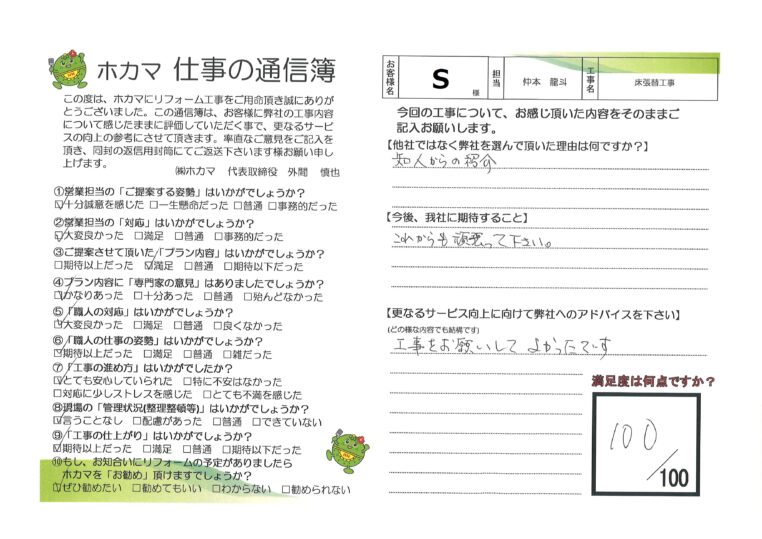 ホカマ 仕事の通信簿
この度は、ホカマにリフォーム工事をご用命頂き誠にありが
とうございました。この通信簿は、お客様に弊社の工事内容
について感じたままに評価していただく事で、更なるサービ
スの向上の参考にさせて頂きます。率直なご意見をご記入を
頂き、同封の返信用封筒にてご返送下さいます様お願い申し
上げます。
㈱ホカマ 代表取締役 外間 慎也
①営業担当の「ご提案する姿勢」はいかがでしょうか？
☑十分誠意を感じた □一生懸命だった □普通 □事務的だった
②営業担当の「対応」はいかがでしょうか？
☑大変良かった □満足 □普通 □事務的だった
③ご提案させて頂いた「プラン内容」はいかがでしょうか？
□期待以上だった ☑満足 □普通 □期待以下だった
④プラン内容に「専門家の意見」はありましたでしょうか？
☑かなりあった □十分あった □普通 □殆んどなかった
⑤「職人の対応」はいかがでしょうか？
☑大変良かった □満足 □普通 □良くなかった
⑥「職人の仕事の姿勢」はいかがでしょうか？
☑期待以上だった □満足 □普通 □雑だった
⑦「工事の進め方」はいかがでしたか？
☑とても安心していられた □特に不安はなかった
□対応に少しストレスを感じた □とても不満を感じた
⑧現場の「管理状況(整理整頓等)」はいかがでしょうか？
☑言うことなし □配慮があった □普通 □できていない
⑨「工事の仕上がり」はいかがでしょうか？
☑期待以上だった □満足 □普通 □期待以下だった
⑩もし、お知合いにリフォームの予定がありましたら
ホカマを「お勧め」頂けますでしょうか？
☑ぜひ勧めたい □勧めてもいい □わからない □勧められない
お客様名 S 様 担当 仲本 龍斗 工事名 床張替工事
今回の工事について、お感じ頂いた内容をそのままご
記入お願いします。
【他社ではなく弊社を選んで頂いた理由は何ですか？】
知人からの紹介
【今後、我社に期待すること】
これからも頑張って下さい。
【更なるサービス向上に向けて弊社へのアドバイスを下さい】
(どの様な内容でも結構です)
工事をお願いして よかったです
満足度は何点ですか？
100
/100